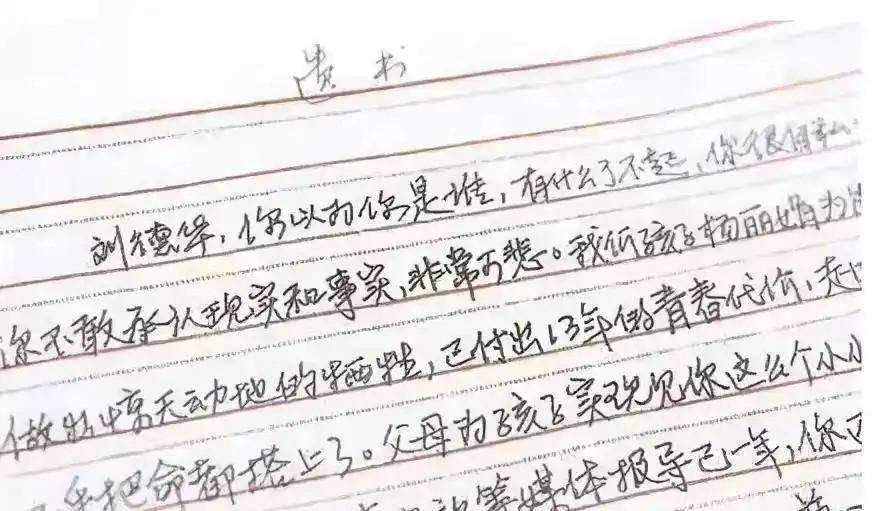 遗书
刘德华,你以为你是谁,有什么了不起,你很
你不敢承认现实和事实,非常可悲。我低孩子杨丽娟为
做出惊天动地的牺牲,已付出13年的青春代价,赴
把命都搭上了。父母为孩子实现见你这么个小小
等媒体报导已一年,你